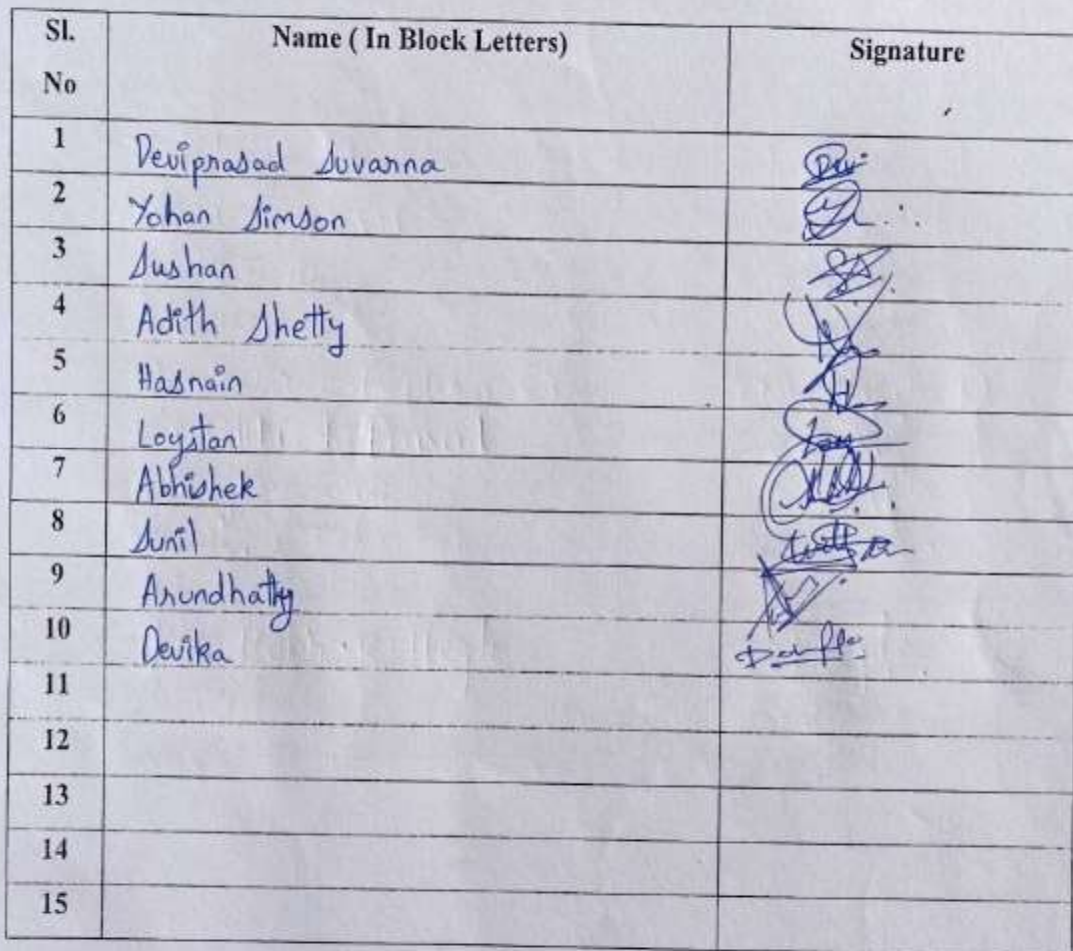 Sl. No Name ( In Block Letters) Signature
1 Deviprasad Suvarna
2 Yohan Simson
3 Sushan
4 Adith Shetty
5 Hasnain
6 Loystan
7 Abhishek
8 Sunil
9 Arundhathy
10 Devika
11
12
13
14
15